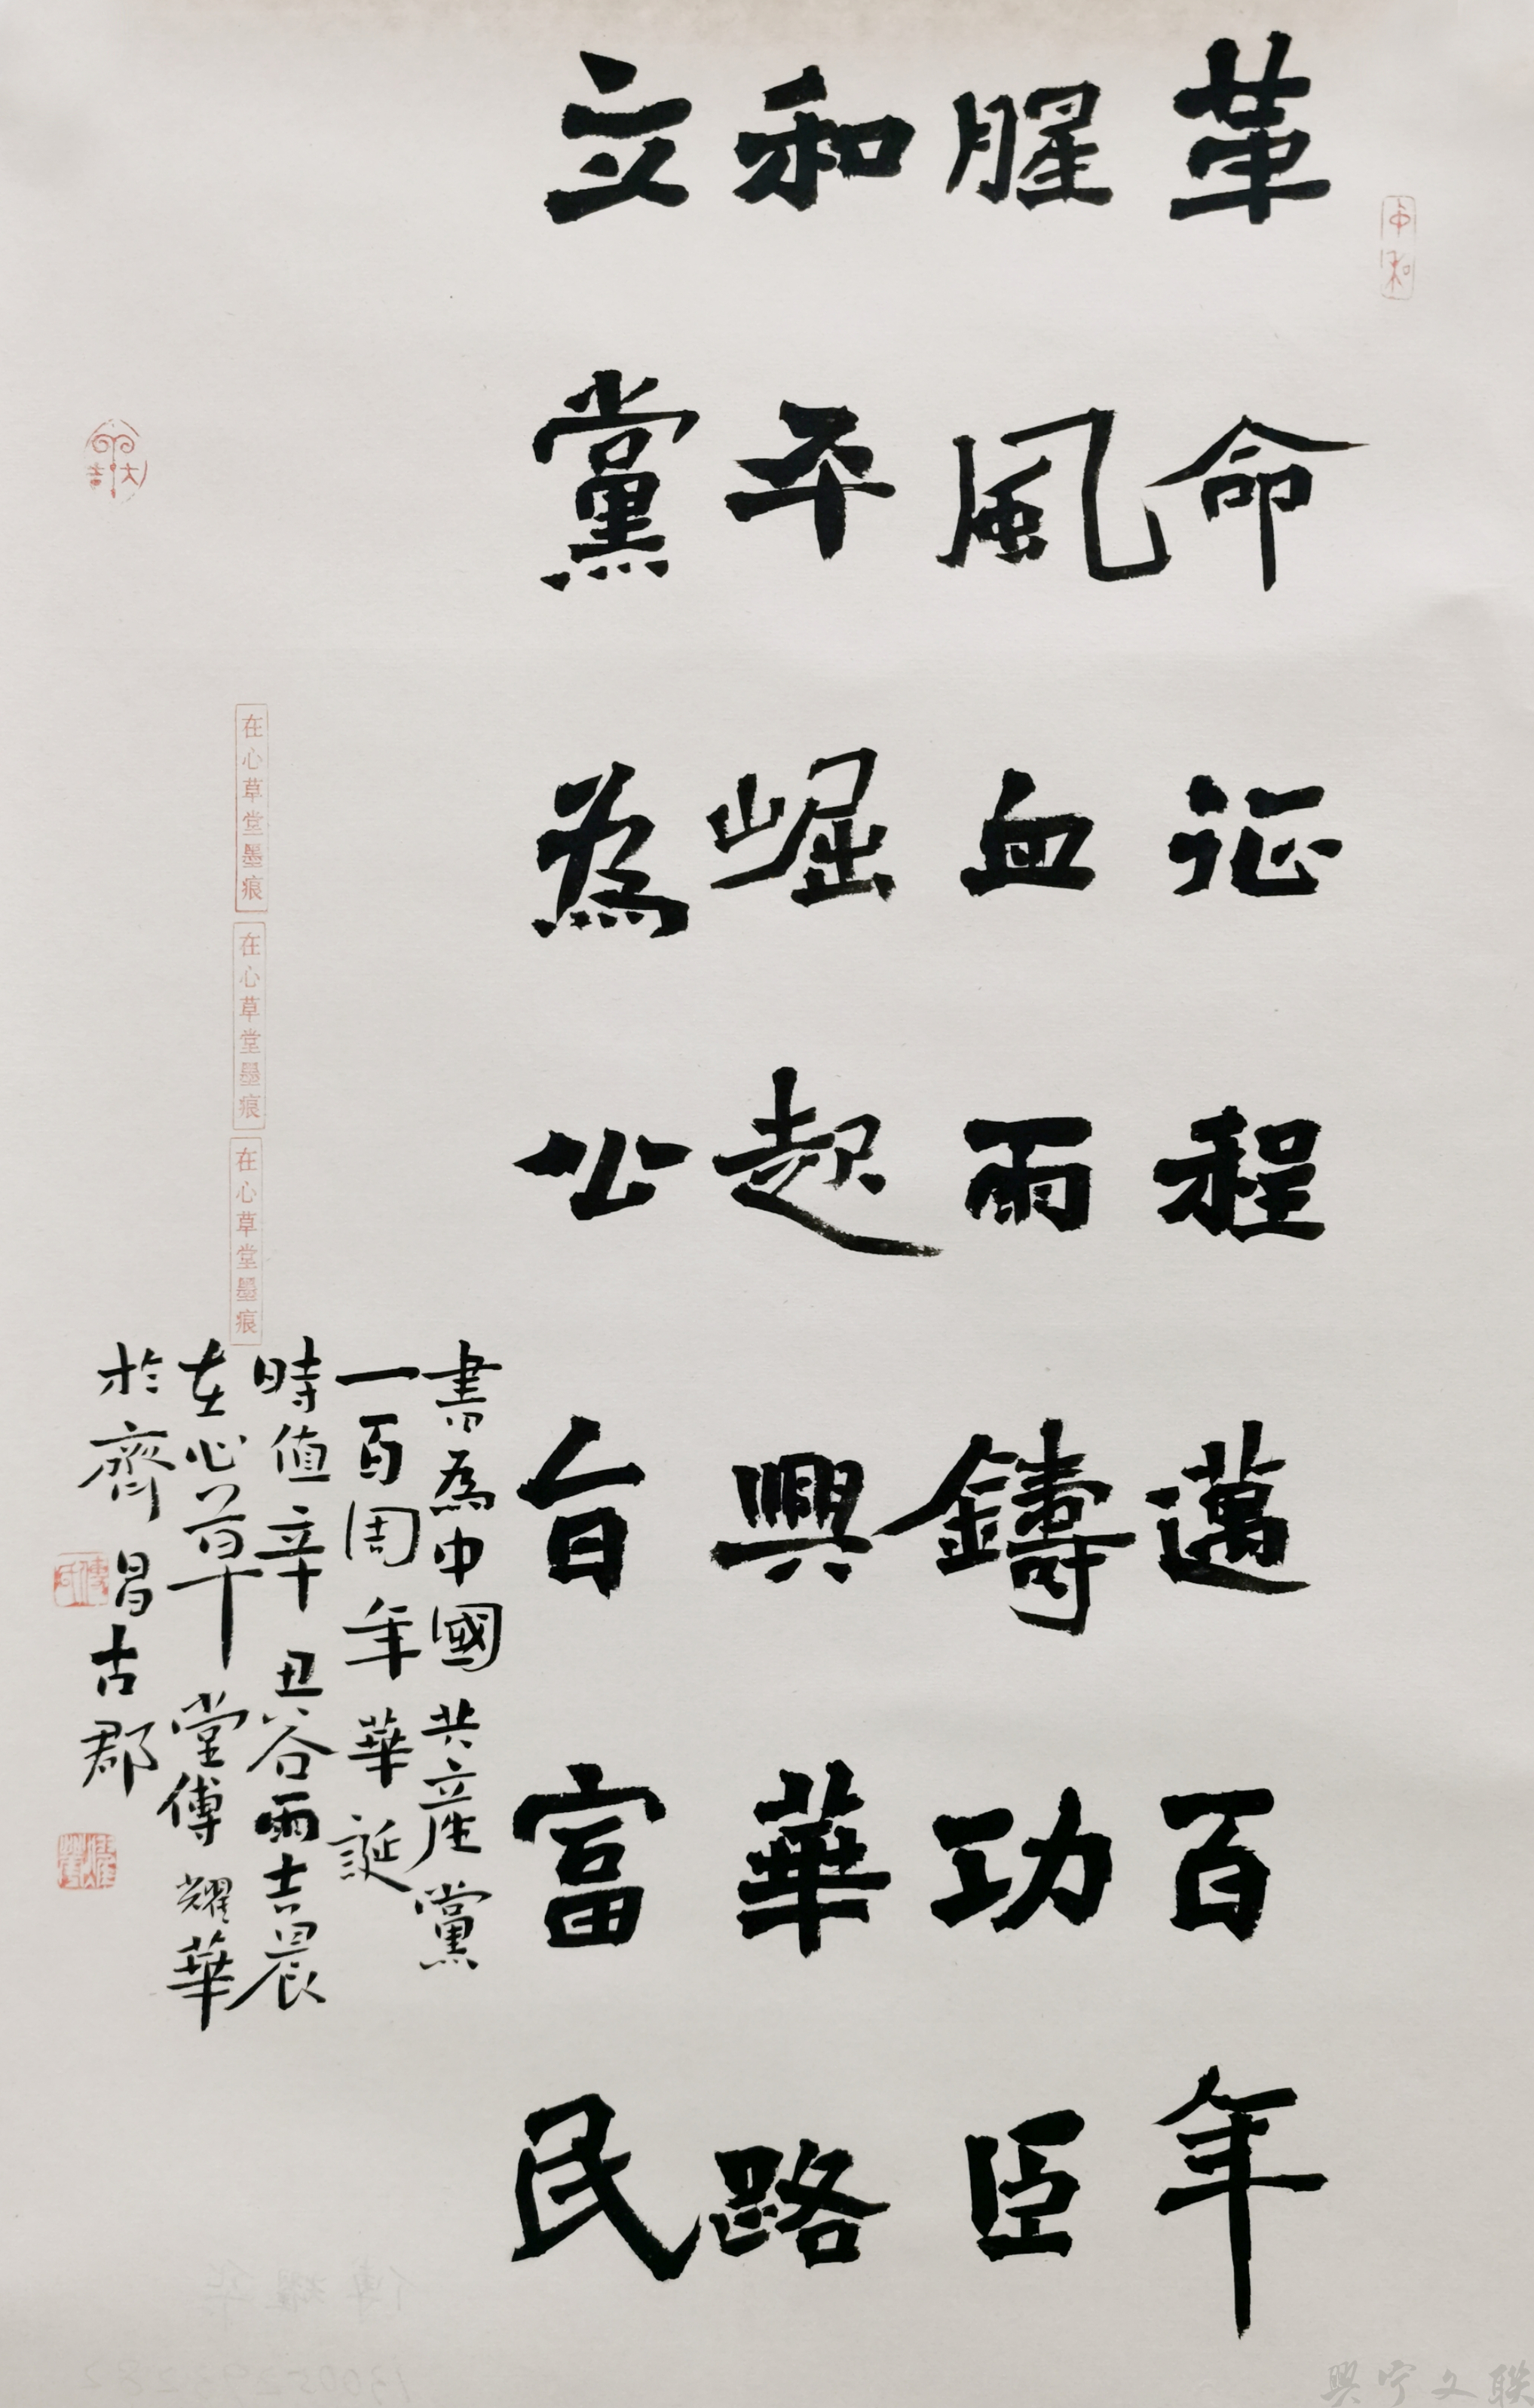 革命征程邁百年
腥風血雨鑄功臣
和平崛起興華路
立黨為公旨富民
書為中國共產黨
一百周年華誕
時值辛丑谷雨吉晨
在心草堂傅耀華
於齊昌古郡
中和
在心草堂墨痕
在心草堂墨痕
在心草堂墨痕
傅印
耀華
興宁文联